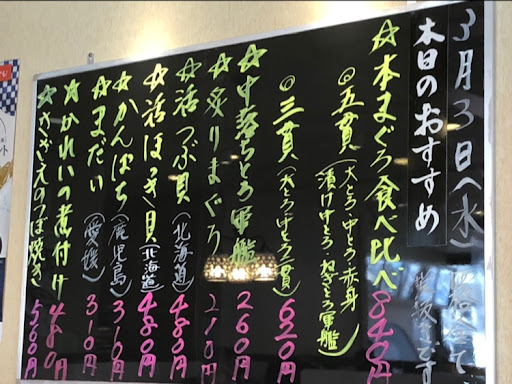 3月3日(水)
本日のおすすめ
☆本まぐろ食べ比べ 840円
◎五貫(大とろ・中とろ・赤身
漬け中とろ・ねぎとろ軍艦)
◎三貫(大とろ・中とろ二貫) 620円
☆中落ちとろ軍艦 260円
☆炙りまぐろ 210円
☆活つぶ貝(北海道) 480円
☆活ほっき貝(北海道) 480円
☆かんぱち(鹿児島) 310円
☆まだい(愛媛) 310円
☆かれいの煮付け 480円
☆さざえのつぼ焼き 500円